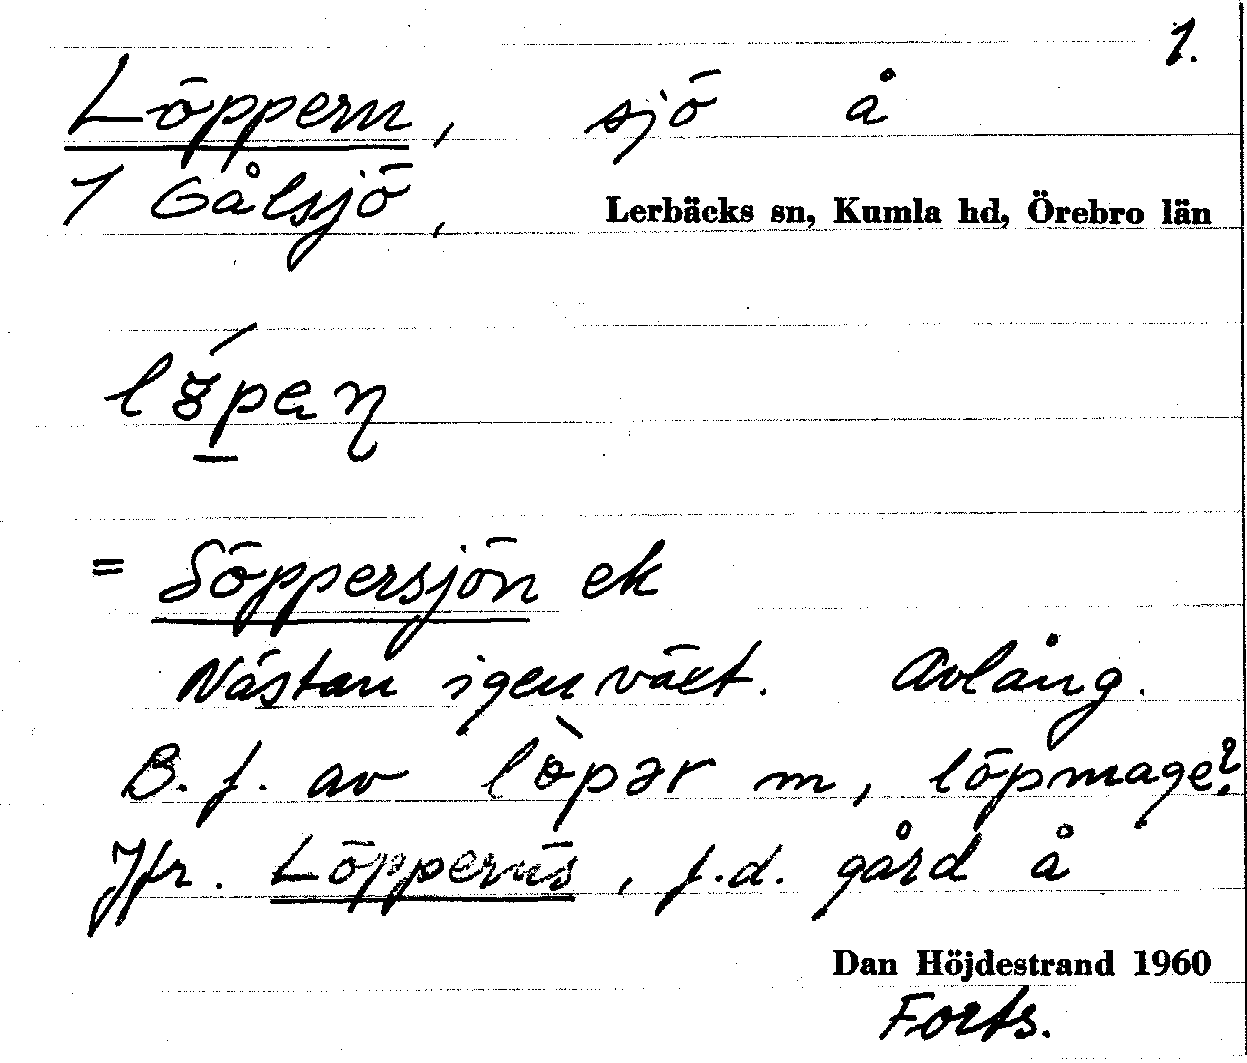 1.
Löppern, sjö å
1 Gålsjö, Lerbäcks sn, Kumla hd, Örebro län
= Söppersjön ek
Nästan igenväxt. Avlång.
B. f. av löpər m, löpmage?
Jfr. Löppernäs, f.d. gård å
Dan Höjdestrand 1960
Forts.